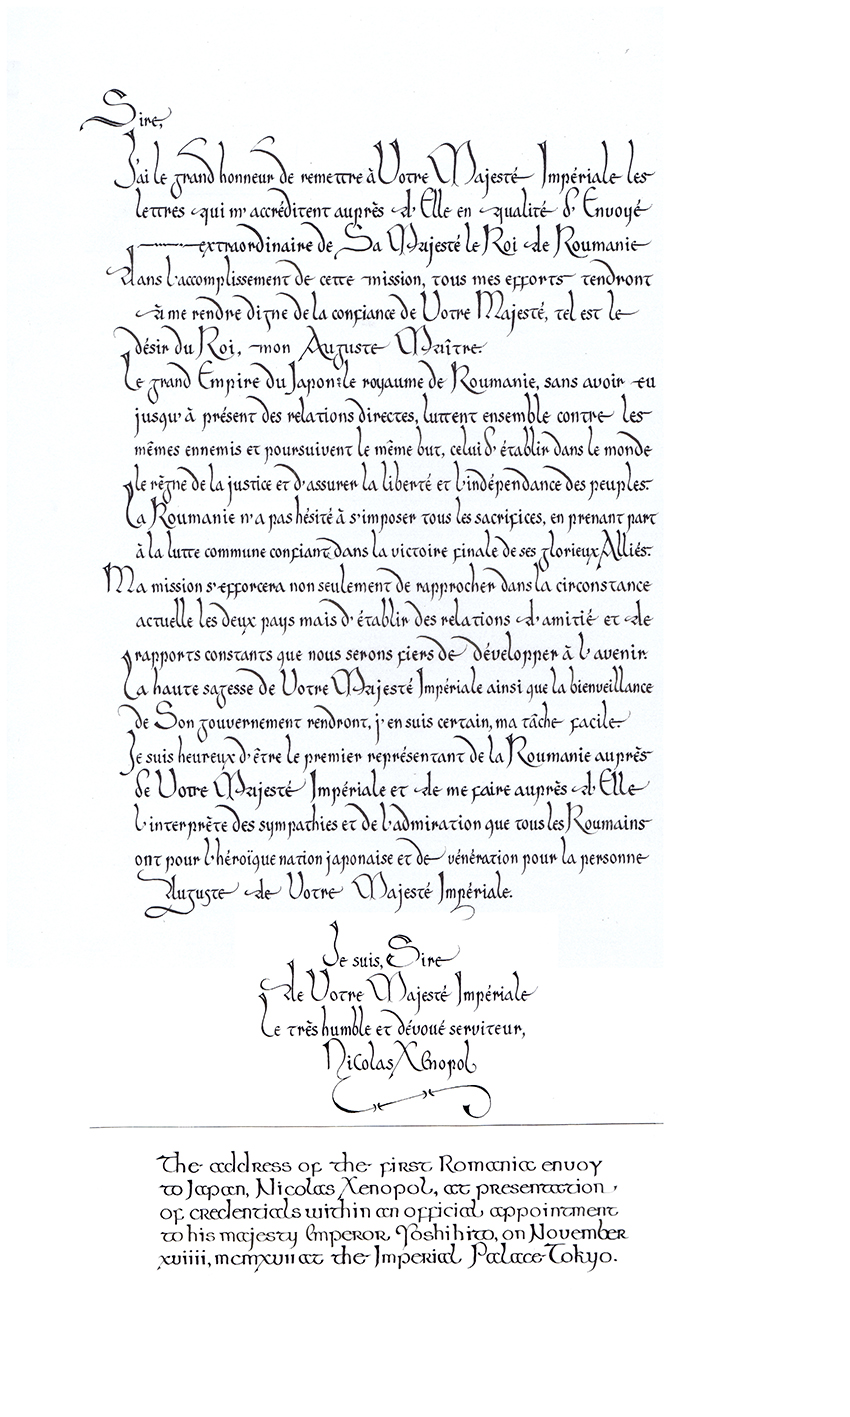 Sire,
J'ai le grand honneur de remettre à Votre Majesté Impériale les
lettres qui m'accréditent auprès d'Elle en qualité d'Envoyé
extraordinaire de Sa Majesté le Roi de Roumanie
dans l'accomplissement de cette mission, tous mes efforts tendront
à me rendre digne de la confiance de Votre Majesté, tel est le
désir du Roi, mon Auguste Maître.
Le grand Empire du Japon & le royaume de Roumanie, sans avoir eu
jusqu'à présent des relations directes, luttent ensemble contre les
mêmes ennemis et poursuivent le même but, celui d'établir dans le monde
le règne de la justice et d'assurer la liberté et l'indépendance des peuples.
La Roumanie n'a pas hésité à s'imposer tous les sacrifices, en prenant part
à la lutte commune confiant dans la victoire finale de ses glorieux Alliés.
Ma mission s'efforcera non seulement de rapprocher dans la circonstance
actuelle les deux pays mais d'établir des relations d'amitié et de
rapports constants que nous serons fiers de développer à l'avenir.
La haute sagesse de Votre Majesté Impériale ainsi que la bienveillance
de Son gouvernement rendront, j'en suis certain, ma tâche facile.
Je suis heureux d'être le premier représentant de la Roumanie auprès
de Votre Majesté Impériale et de me faire auprès d'Elle
l'interprète des sympathies et de l'admiration que tous les Roumains
ont pour l'héroïque nation japonaise et de vénération pour la personne
Auguste de Votre Majesté Impériale.
Je suis, Sire
de Votre Majesté Impériale
Le très humble et dévoué serviteur,
Nicolas Xenopol
The address of the first Romania envoy
to Japan, Nicolas Xenopol, at presentation
of credentials within an official appointment
to his majesty Emperor Yoshihito, on November
xviiii, mcmxvii at the Imperial Palace-Tokyo.